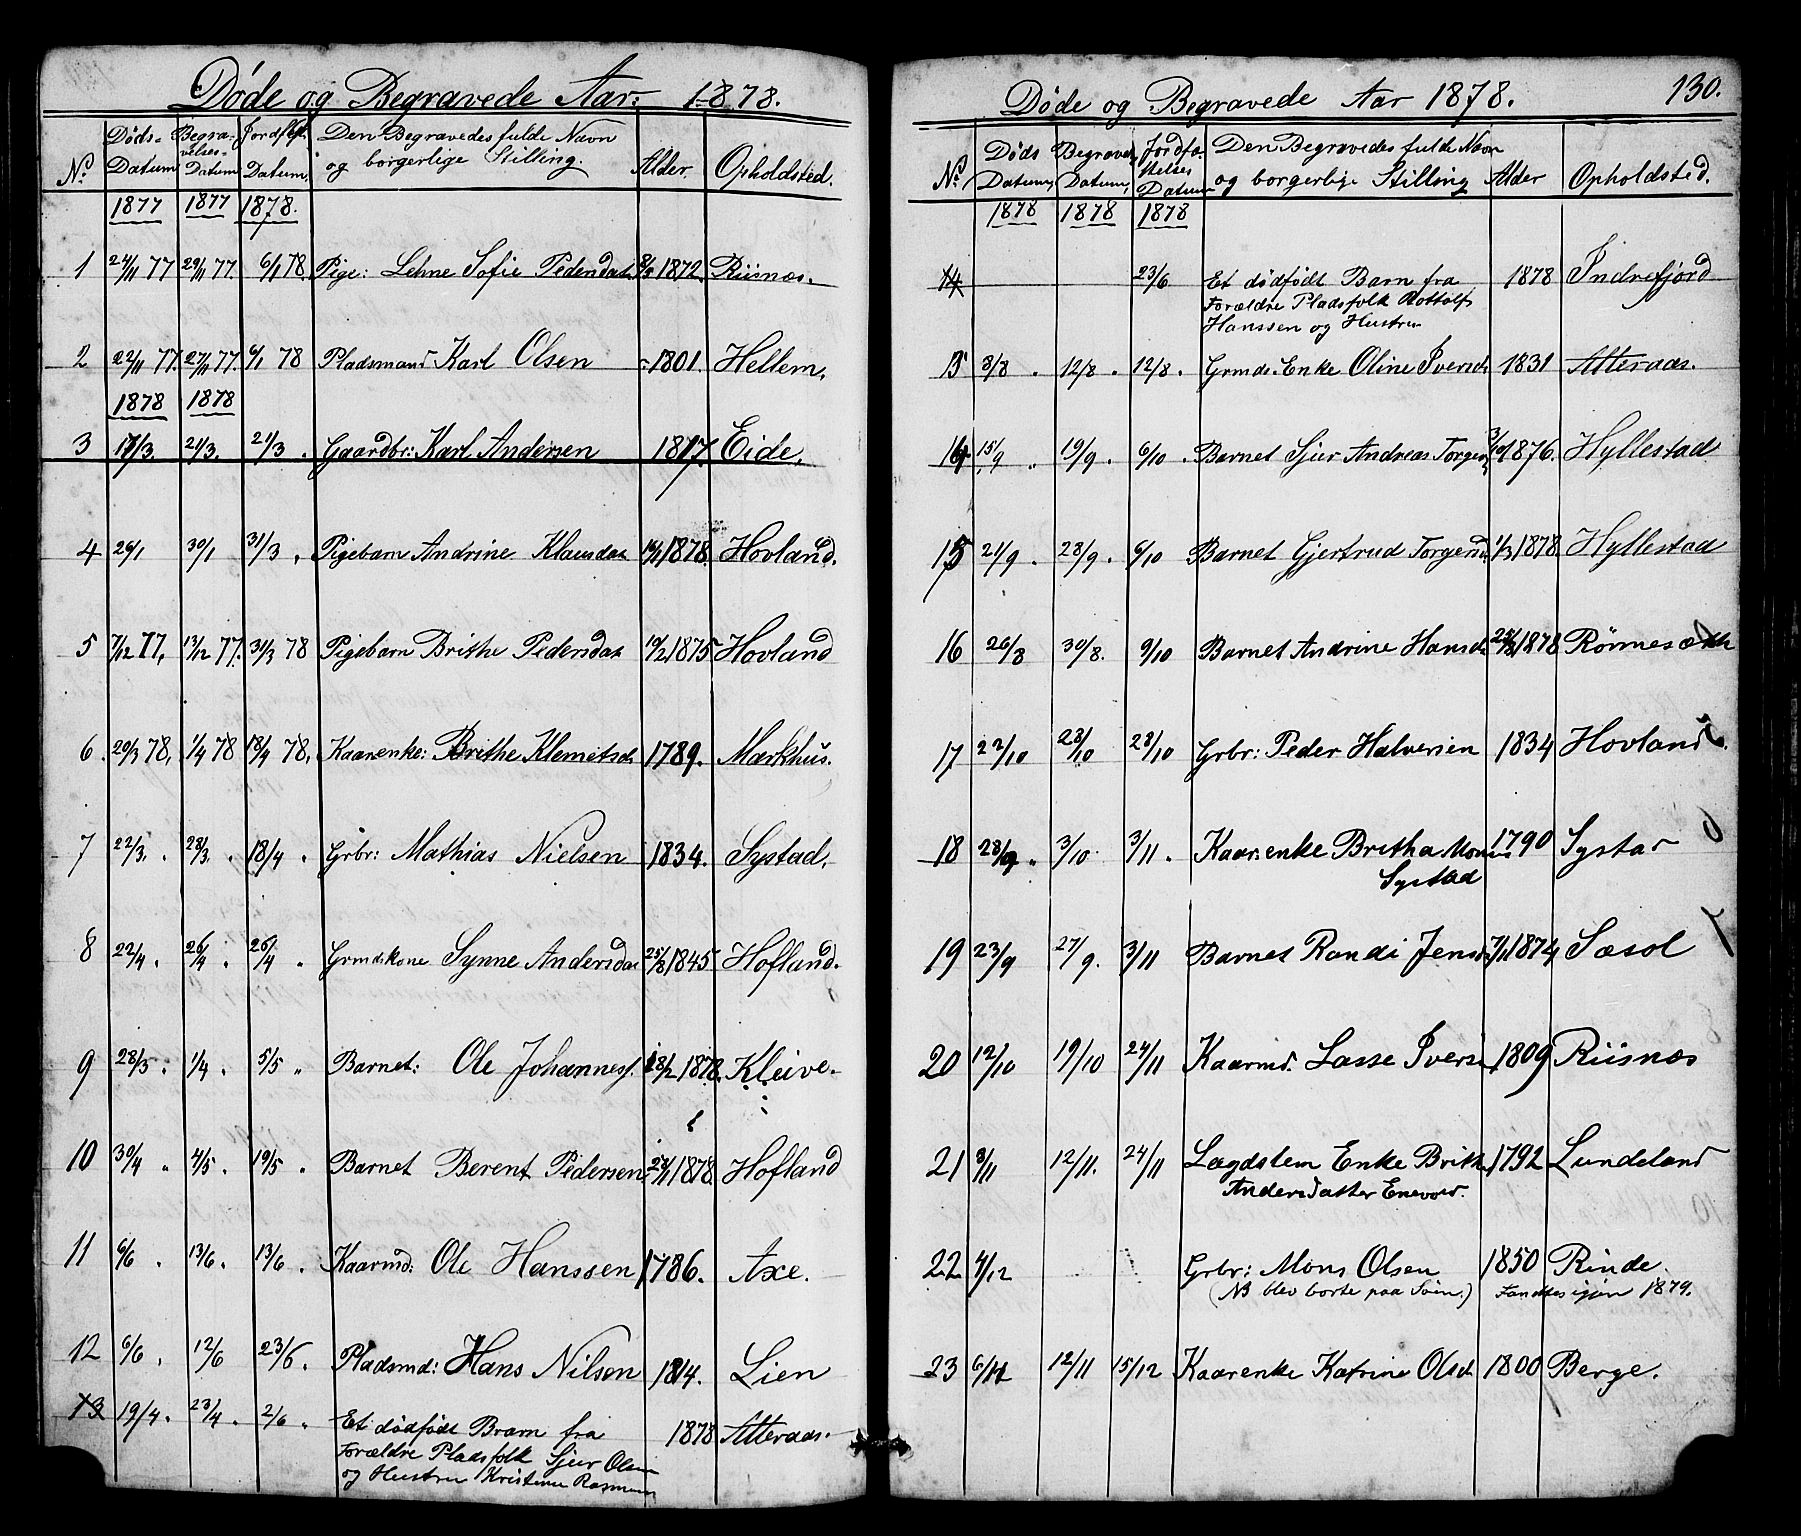 Døde og Begravede Aar: 1878.
No. Døds-Datum Begravelses-Datum Jordfst. Datum, Den Begravedes fulde Navn og borgerlige Stilling. Alder Opholdsted.
1877 1877 1878.
1 24/11 77 29/11 77. 6/1 78. Pige: Lehne Sofie Pedersdat. 8/5 1872. Riisnæs.
2 22/11 77. 27/11 77. 6/1 78 Pladsmand Karl Olsen 1801. Hellem.
1878 1878
3 17/3. 21/3. 21/3. Gaardbr: Karl Andersen 1817. Eide.
4 26/1 30/1 31/3. Pigebarn Andrine Klausdat. 1878. Hovland.
5 7/12 77. 13/12 77. 31/3 78 Pigebarn Brithe Pedersdat. 10/2 1875 Hovland
6. 20/3 78. 1/4 78 18/4 78. Kaarenke: Brithe Klemetsd. 1789. Mærkhus.
7 22/3. 28/3. 18/4. Grbr: Mathias Nielsen 1834. Systad.
8 22/4. 26/4. 26/4. Grmdskone Synne Andersdat 25/8 1845 Hofland.
9 28/3. 1/4. 5/5 Barnet: Ole Johanness. 28/2 1878. Kleive.
10 30/4 4/5. 19/5 Barnet Berent Pedersen 1878. Hofland
11 6/6. 13/6. 13/6. Kaarmd: Ole Hanssen 1786. Axe.
12 6/6. 12/6 23/6. Pladsmd: Hans Nilsen 1814. Lien
13 19/4. 23/4. 2/6. Et dødfødt Bram fra 1878 Atteraas.
Forældre Pladsfolk Sjur Olsen
og Hustru Kristine Rasmusen
Døde og Begravede Aar 1878. 130.
No. Døds Datum, Begravels Datum, Jordfæstelses Datum Den Begravedes fulde Navn og borgerlige Stilling Alder Opholdsted.
1878 1878 1878
14 23/6 Et dødfødt Barn fra 1878 Indrefjord
Forældre Pladsfolk
Hanssen og Hustru
13 8/8. 12/8. 12/8. Grmds. Enke Oline Iversd. 1831 Atteraas.
14 15/9. 19/9. 6/10. Barnet Sjur Andreas Torgers. 3/10 1876. Hyllestad
15 21/9. 28/9. 6/10 Barnet Gjertrud Torgersd. 1/3 1878. Hyllestad
16 26/8 30/8. 9/10 Barnet Andrine Hansd. 1878 Rønnesæth
17 22/10 28/10 28/10 Grbr: Peder Halversen 1834 Hovland.
18 28/9. 3/10. 3/11. Kaarenke Britha Mons 1790 Systad
Systad
19 23/9 27/9. 3/11 Barnet Randi Jensd. 7/11 1874 Sæsol
20 12/10 19/10 24/11 Kaarmd. Lasse Ivers. 1809 Riisnæs
21 3/11 12/11. 24/11 Lægdslem Enke Brith. 1792 Lundeland
Andersdatter Enevold.
22 4/12 Grbr: Mons Olsen 1850 Rinde.
(NB blev borte paa Søen.) Fandtes igjen 1879.
23 6/11 12/11 15/12 Kaarenke Katrine Olsd. 1800 Berge.